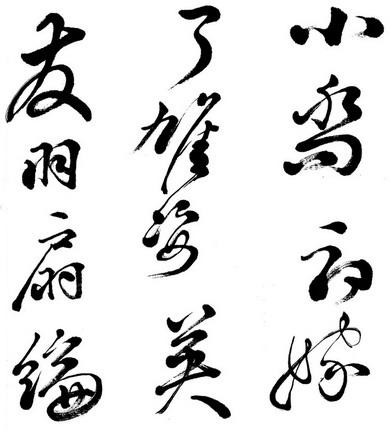 小喬初嫁
了雄姿英
發羽扇綸